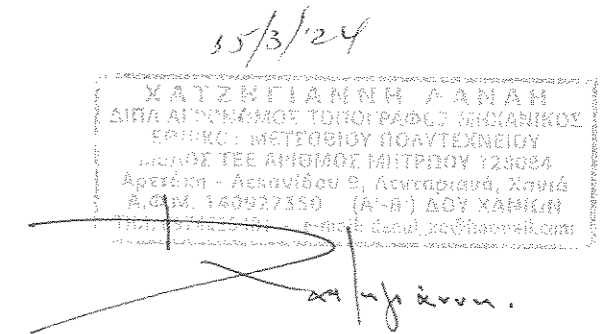 15/3/'24
ΧΑΤΖΗΓΙΑΝΝΗ ΔΑΝΑΗ
ΔΙΠΛ ΑΓΡΟΝΟΜΟΣ ΤΟΠΟΓΡΑΦΟΣ ΜΗΧΑΝΙΚΟΣ
ΜΕΤΣΟΒΙΟΥ ΠΟΛΥΤΕΧΝΕΙΟΥ
ΜΕΛΟΣ ΤΕΕ ΑΡΙΘΜΟΣ ΜΗΤΡΩΟΥ
Λεκανίδου 9, Λενταριανά, Χανιά
Α.Φ.Μ. 140927350 (Α'-Β') ΔΟΥ ΧΑΝΙΩΝ
e-mail:
Χατζηγιάννη.